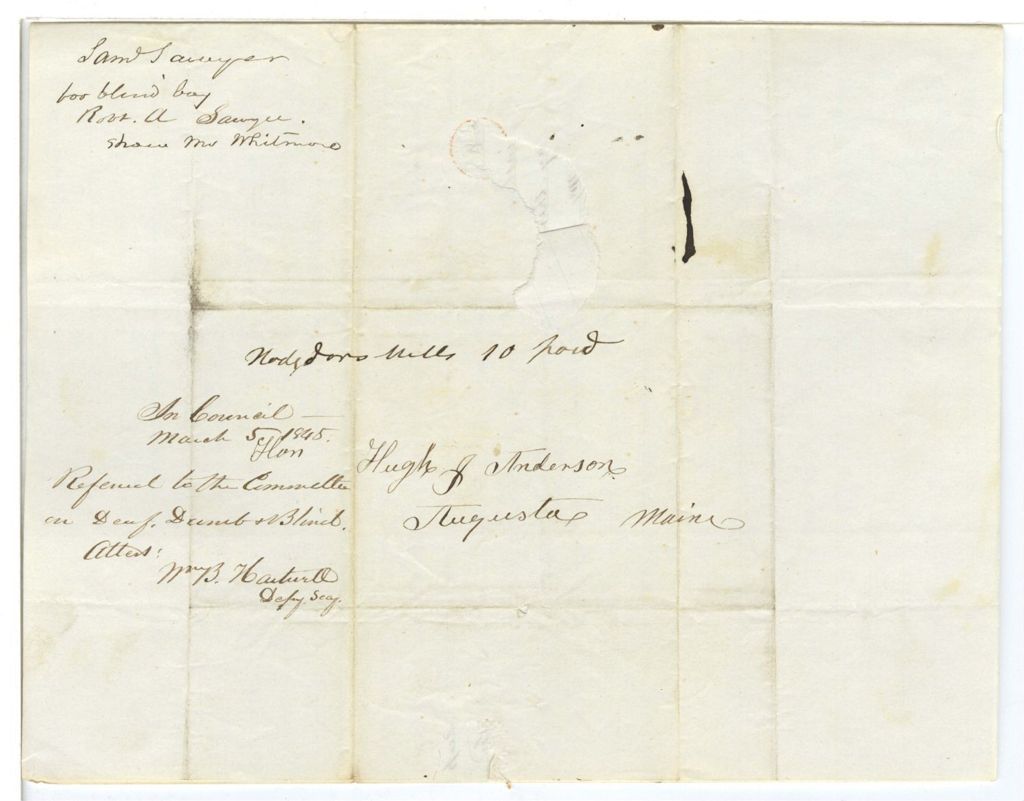 Saml Sawyer
for blind boy
Robt. A Sawyer.
Mr Whitmore
Hodgdons Mills 10 paid
In Council —
March 5, 1845.
Referred to the Committee
on Deaf, Dumb & Blind.
Attest:
Wm B. Hartwell
Depy. Secy.
Hon
Hugh J Anderson
Augusta Maine